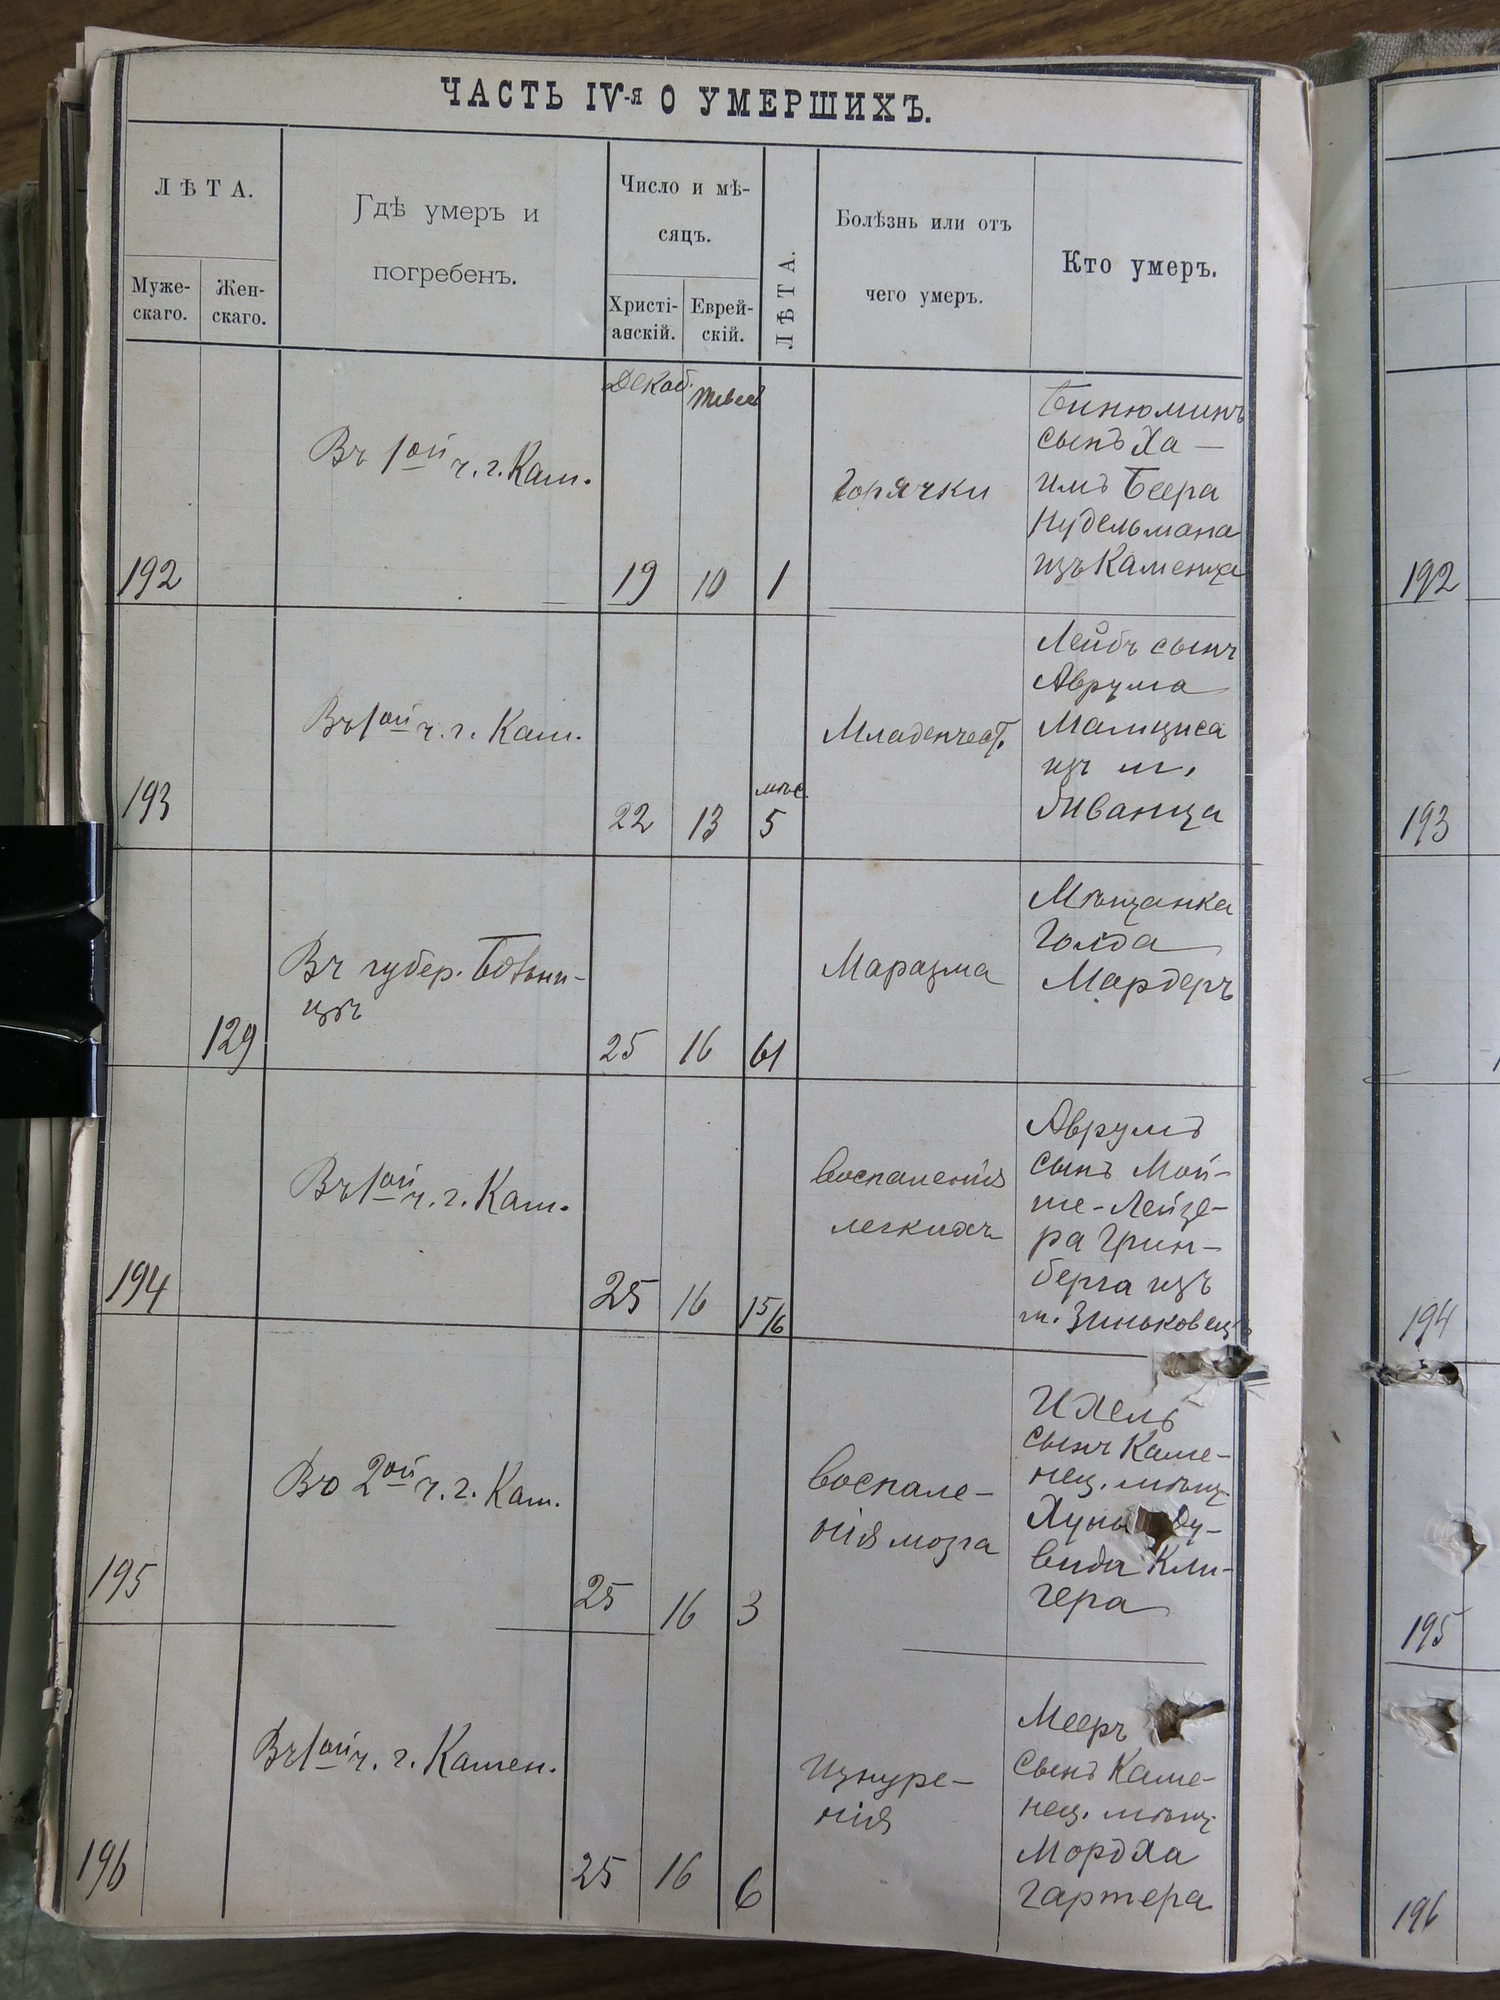 ЧАСТЬ IV-я О УМЕРШИХЪ.
ЛѢТА.
Муже-
скаго.
Жен-
скаго.
Гдѣ умеръ и
погребенъ.
Число и мѣ-
сяцъ.
Христі-
анскій.
Еврей-
скій.
ЛѢТА.
Болѣзнь или отъ
чего умеръ.
Кто умеръ.
192
Въ 1ой ч. г. Кам.
Декаб.
19
Тевес
10
1
Горячки
Бинюминъ
сынъ Ха-
имъ Беера
Нудельмана
изъ Каменца
193
Въ 1ой ч. г. Кам.
22
13
мѣс.
5
Младенчест.
Лейбъ сынъ
Аврума
Малциса
изъ м.
Жванца
129
Въ губер. Больни-
цѣ
25
16
61
Маразма
Мѣщанка
Голда
Мардеръ
194
Въ 1ой ч. г. Кам.
25
16
1 5/6
Воспаленія
легкихъ
Аврумъ
сынъ Мой-
ше-Лейзе-
ра Грин-
берга изъ
м. Зиньковецъ
195
Во 2ой ч. г. Кам.
25
16
3
Воспале-
нія мозга
Ихель
сынъ Каме-
нец. мѣщ.
Хуны Ду-
вида Кли-
гера
196
Въ 1ой ч. г. Камен.
25
16
6
Изнуре-
нія
Мееръ
сынъ Каме-
нец. мѣщ.
Мордха
Гартера
192
193
194
195
196